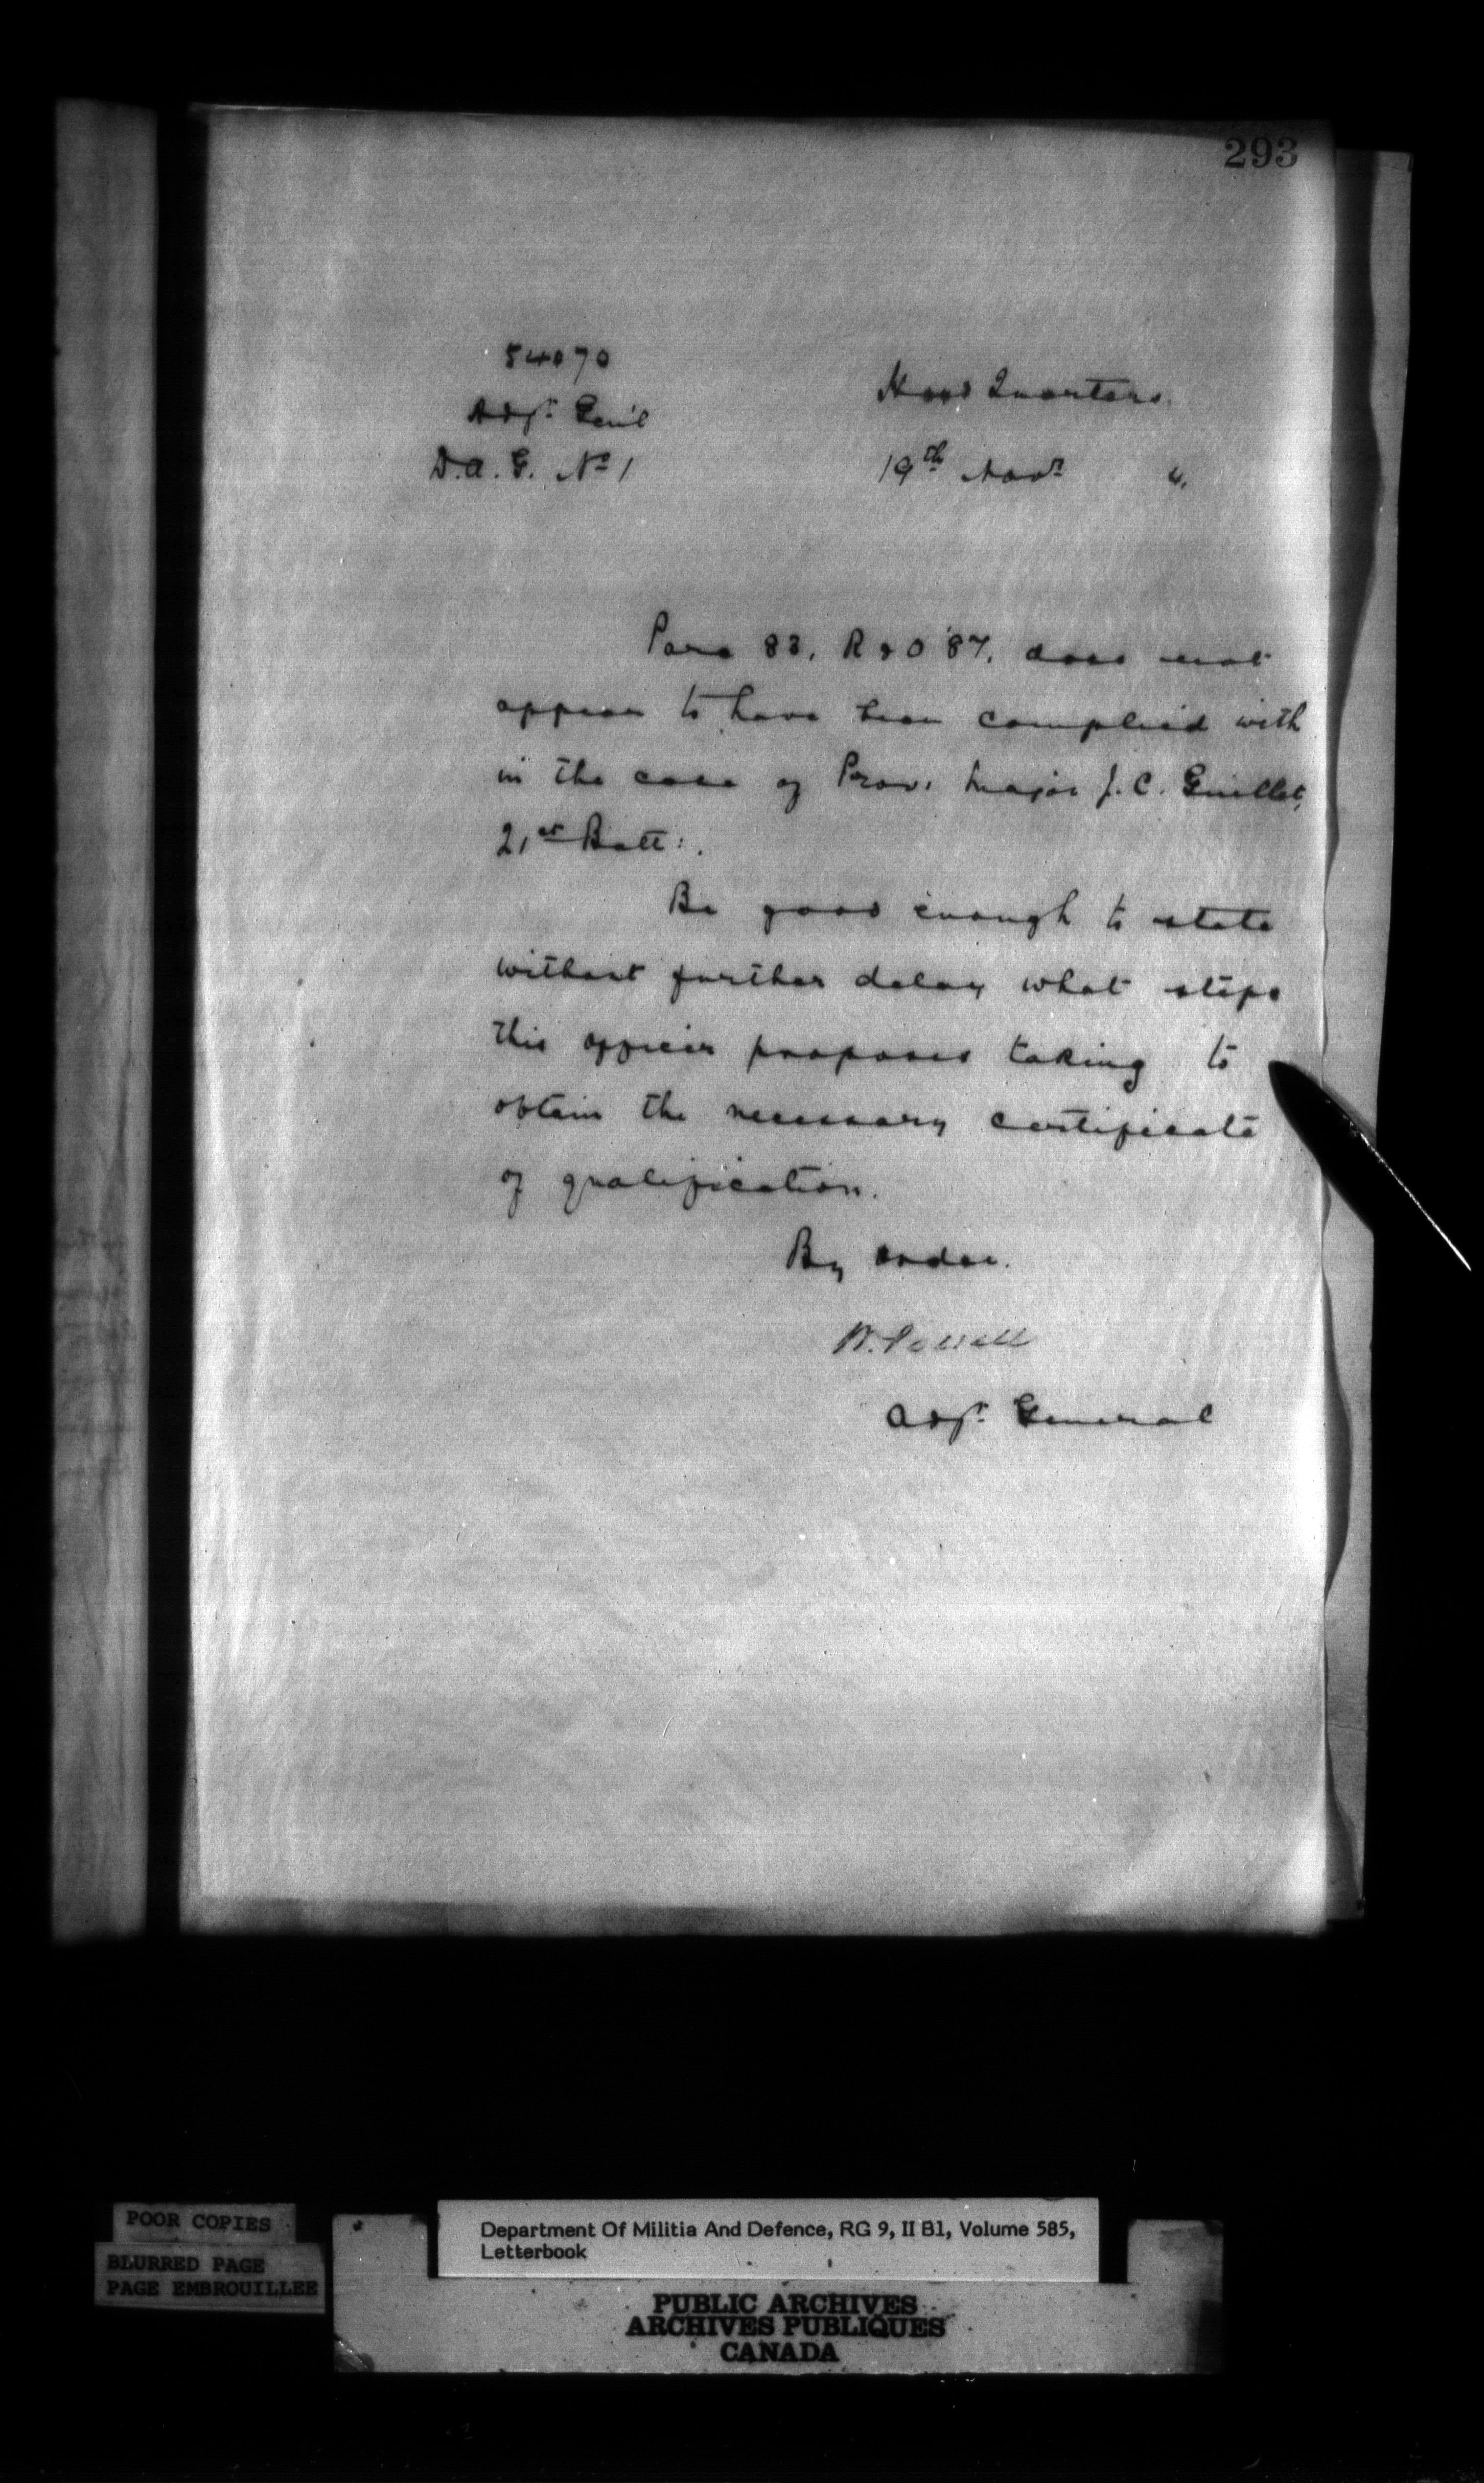 293
54070
Adjt. Gen'l
D.A.G. No 1
Head Quarters
19th Novr
Para 83, R & O '87, does not
appear to have been complied with
in the case of Prov. Major J. C. Guillet,
21st Batt:.
Be good enough to state
without further delay what steps
this officer proposes taking to
obtain the necessary certificate
of qualification.
By order.
W. Powell
Adjt. General
POOR COPIES
BLURRED PAGE
PAGE EMBROUILLEE
Department Of Militia And Defence, RG 9, II B1, Volume 585,
Letterbook
PUBLIC ARCHIVES
ARCHIVES PUBLIQUES
CANADA